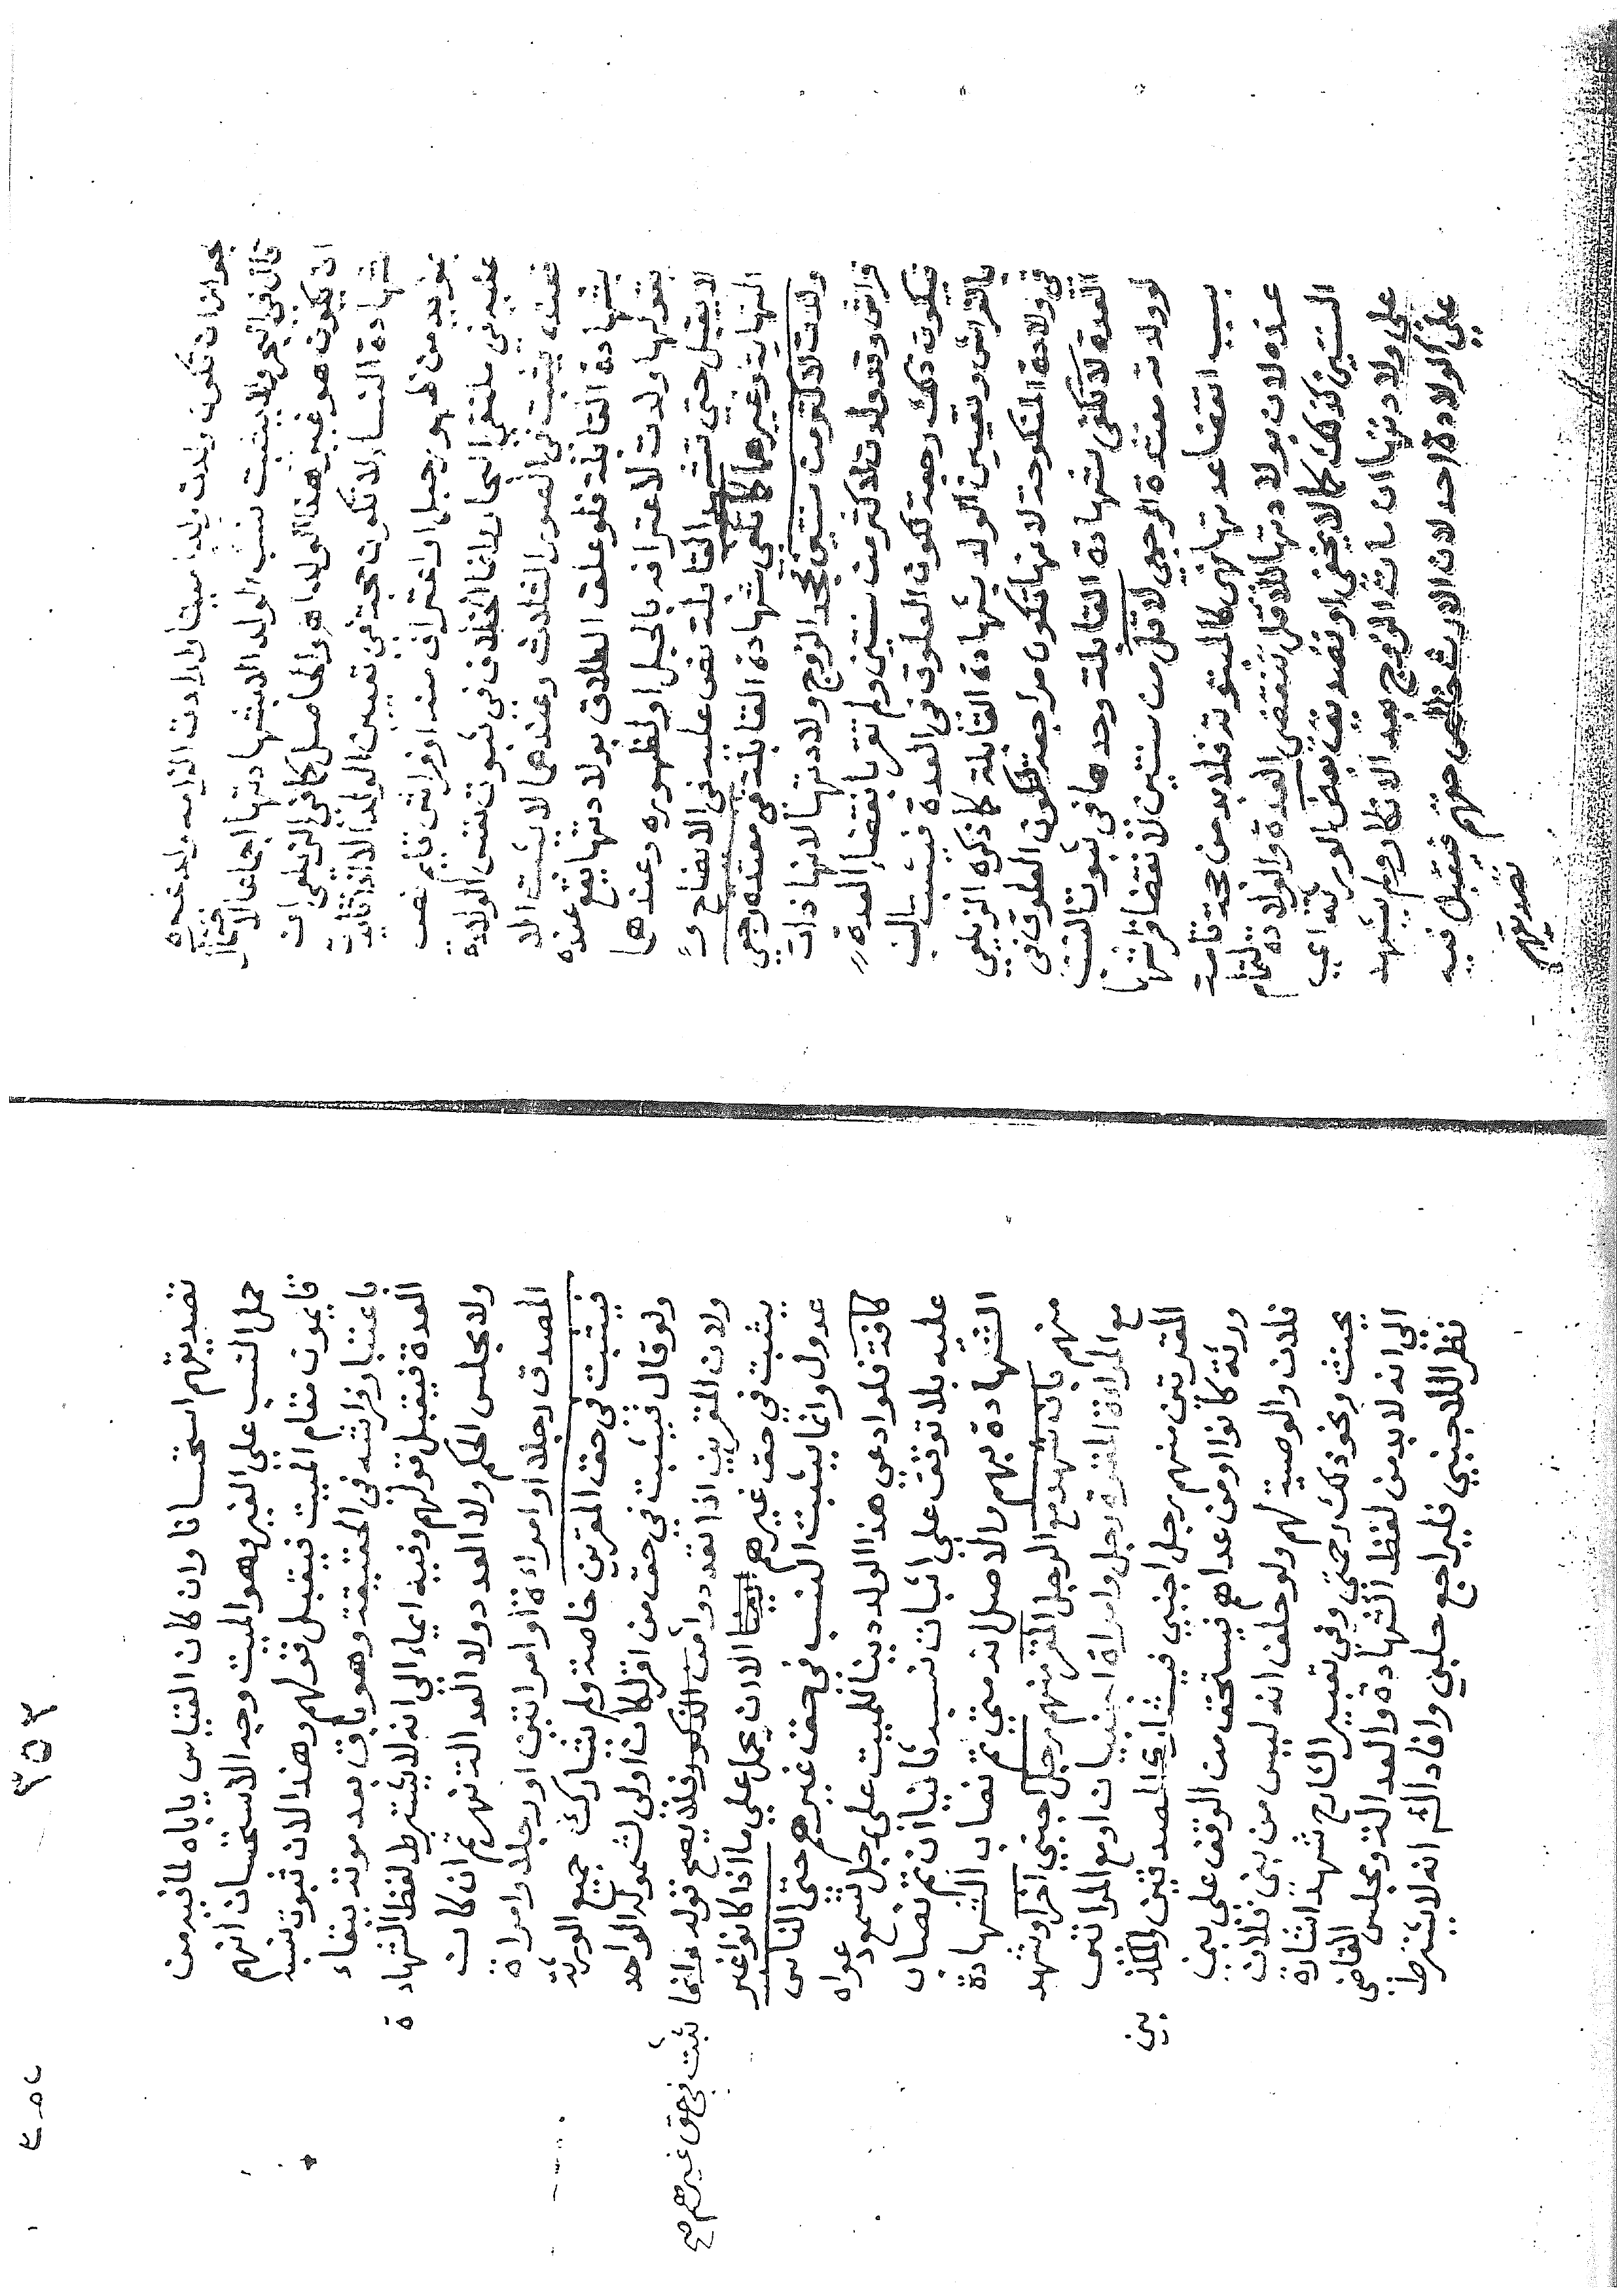 بجوازان تكون ولدت ولدا ميتا وارادت الزامه ولد غيره
قال في البحر ولا يثبت نسب الولد الا بشهادتها اجماعا لاحتمال
ان يكون هو غير هذا الولد اه والحاصل كما في الزيلعي ان
شهادة النساء لا تكون حجة في تعيين الولد الا اذا تايد
بمؤيد من ظهور حبل او اعتراف منه او فراش قايم نص
عليه في ملتقي البحار وانما الخلاف في ثبوت نفس الولادة
فعنده يثبت في الصور الثلاث وعندهما لا يثبت الا
بشهادة القابلة فلو علق الطلاق بولادتها يقع عنده
بقولها ولدت لاعترافه بالحبل او لظهوره وعندهما
لا يقبل حتي تشهد القابلة نص عليه في الايضاح و
النهاية وغيرهما كما تكفي شهادة القابلة في معتدة رجعي
ولدت لاكثر من سنتين فجحد الزوج ولادتها لانها ذات
فراش وقد ولدت لاكثر من سنتين ولم تقر بانقضاء العدة
فيكون ذلك رجعة لكون العلوق في العدة فيثبت النسب
بالفراش وتعيين الولد بشهادة القابلة كما ذكره الزيلعي
في ولادة المنكوحة لانها تكون مراجعة لكون العلوق في
العدة لا تكفي شهادة القابلة وحدها في ثبوت النسب
لو ولدت معتدة الرجعي لاقل من سنتين لانقضاء فراشها
بسبب انقضاء عدتها فهي كالمبتوتة فلابد من حجة تامة
عنده لان بولادتها للاقل تنقضي العدة والولادة لتمام
السنتين كذلك كما لا يخفى او تصديق بعض الورثة اي
علي ولادتها ان مات الزوج بعد الانكار ولم يشهد
علي الولادة احد لان الارث خالص حقهم فيقبل فيه
تصديقهم
تصديقهم استحسانا وان كان القياس ياباه لما فيه من
حمل النسب علي الغير وهو الميت وجه الاستحسان انهم
قايمون مقام الميت فيقبل قولهم وهذا لان ثبوت نسبه
باعتبار فراشه في الحقيقة وهو باق بعد موته ببقاء
العدة فيقبل قولهم وفيه ايماء الي انه لا يشترط لفظ الشهادة
ولا مجلس الحكم ولا العدد ولا العدالة نهر ثم ان كان
المصدق رجلا او امراة او امراتين او رجلا وامراة
فيثبت في حق المقرين خاصة ولم تشارك جميع الورثة
ولو قال فيثبت في حق من اقر لكان اولي لشموله الواحد
ولان المقرين اذا تعددوا من الذكور فلا يصح قوله وانما ثبت في حق غيرهم صح
يثبت في حق غيرهم الا ان يحمل علي ما اذا كانوا غير
عدول وانما يثبت النسب في حق غيرهم حتي الناس
كافة فلو ادعي هذا الولد دينا للميت علي رجل تسمع دعواه
عليه بلا توقف علي اثبات نسبه ثانيا ان تم نصاب
الشهادة بهم والاصل انه متي تم نصاب الشهادة
منهم بان شهد مع الرجل المقر منهم رجل اجنبي اخر او شهد
مع المراة المقرة رجل وامراة اجنبيان او مع المراتين
المقرتين منهم رجل اجنبي فيشارك المصدقين والمكذبين
ورثة كانوا او من عداهم فيستحق من الوقف علي بني
فلان والوصية لهم ولو حلف انه ليس من بني فلان
يحنث ونحو ذلك رحمتي وفي تعبير الشارح شهد اشارة
الي انه لابد من لفظ الشهادة والعدالة ومجلس القاضي
نظرا للاجنبي فليراجع حلبي وافاد الشر انه لا يشترط
٣٥٣